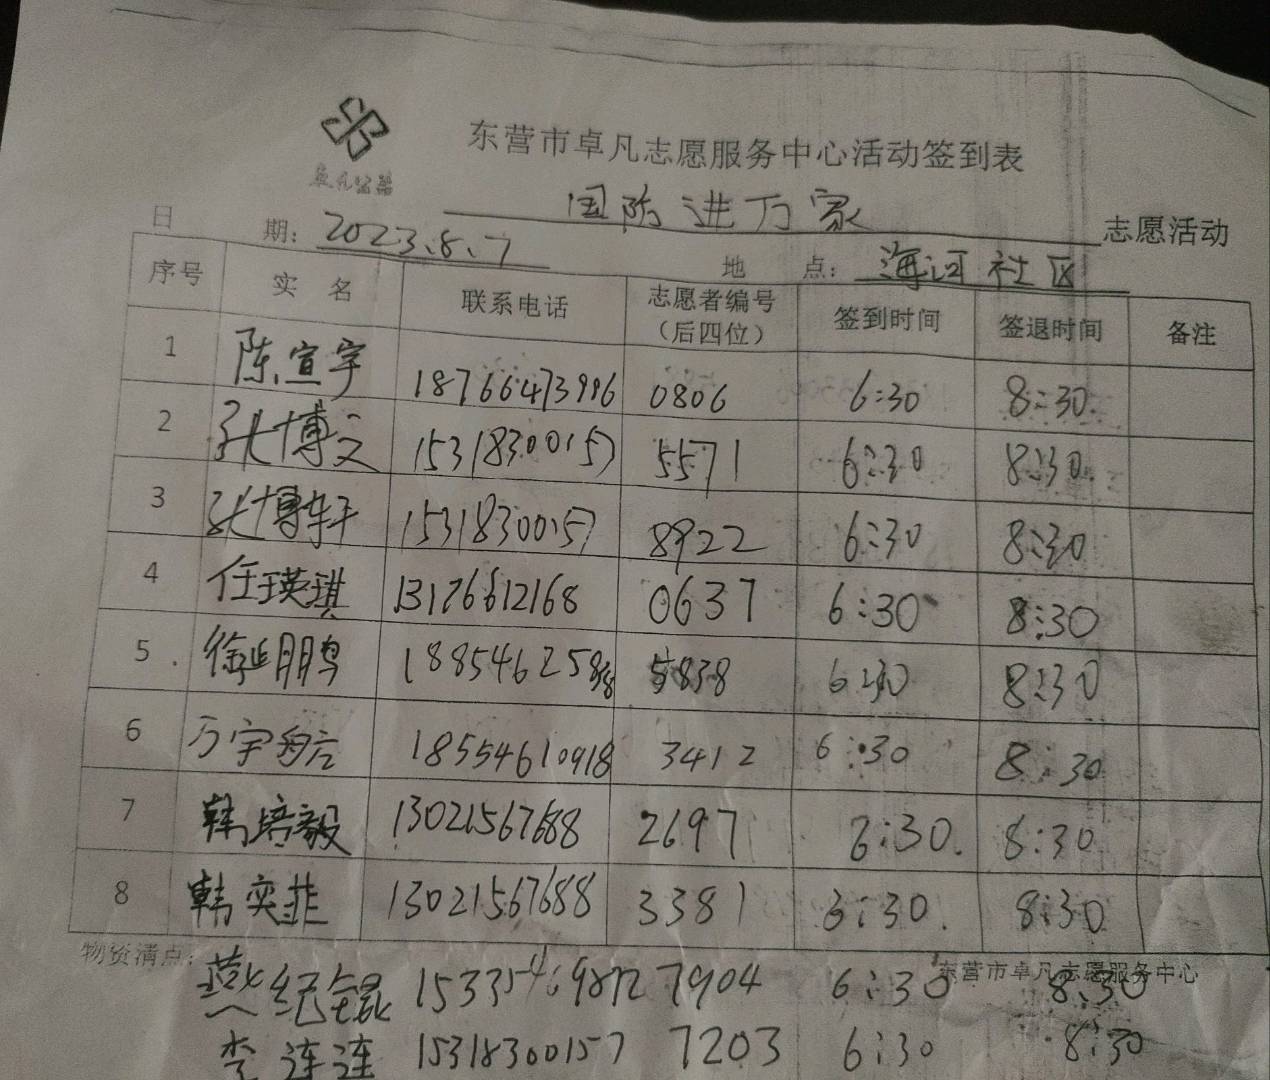 东营市卓凡志愿服务中心活动签到表
卓凡公益
国防进万家 志愿活动
日 期: 2023.8.7 地 点: 海河社区
序号 实 名 联系电话 志愿者编号(后四位) 签到时间 签退时间 备注
1 陈宣宇 18766473996 0806 6:30 8:30
2 张博文 15318300157 5571 6:30 8:30
3 张博轩 15318300157 8922 6:30 8:30
4 任瑛琪 13176612168 0637 6:30 8:30
5 徐延鹏 5838 6:30 8:30
6 万宇 18554610918 3412 6:30 8:30
7 韩培毅 13021567688 2697 6:30 8:30
8 韩奕菲 13021567688 3381 6:30 8:30
物资清点: 东营市卓凡志愿服务中心
燕纪锟 7904 6:30 8:30
李连连 15318300157 7203 6:30 8:30